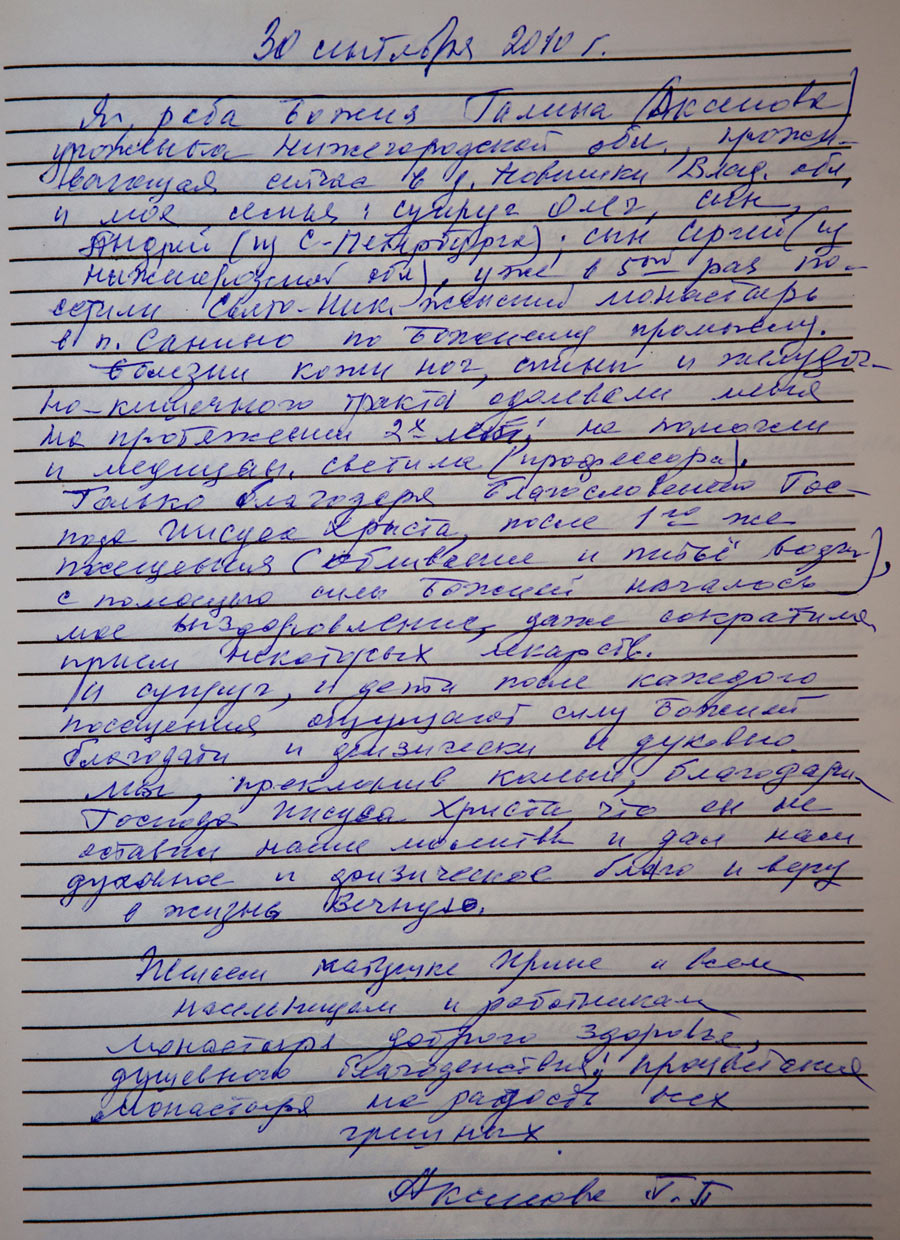 30 сентября 2010 г.
Я, раба Божия Галина (Аксенова)
уроженка Нижегородской обл., прожи-
вающая сейчас в д. Новишки Влад. обл,
и моя семья: супруг Олег, сын
Андрей (из С-Петербурга), сын Сергей (из
Нижегородской обл), уже в 5ый раз по-
сетили Свято-Ник. женский монастырь
в п. Санино по Божьему промыслу.
Болезни кожи ног, спины и желудоч-
но-кишечного тракта одолевали меня
на протяжении 2х лет; не помогли
и медицин. светила (профессора).
Только благодаря благословению Гос-
пода Иисуса Христа, после 1го же
посещения (обливание и питьё воды),
с помощью силы Божией началось
мое выздоровление, даже сократила
прием некоторых лекарств.
И супруг, и дети после каждого
посещения ощущают силу Божией
благодати и физически и духовно.
Мы, преклонив колени, благодарим
Господа Иисуса Христа, что он не
оставил наши молитвы и дал нам
духовное и физическое благо и веру
в жизнь Вечную.
Желаем матушке Ирине и всем
насельницам и работникам
монастыря доброго здоровья,
душевного благоденствия; процветания
монастыря на радость всех
грешных
Аксенова Г.П